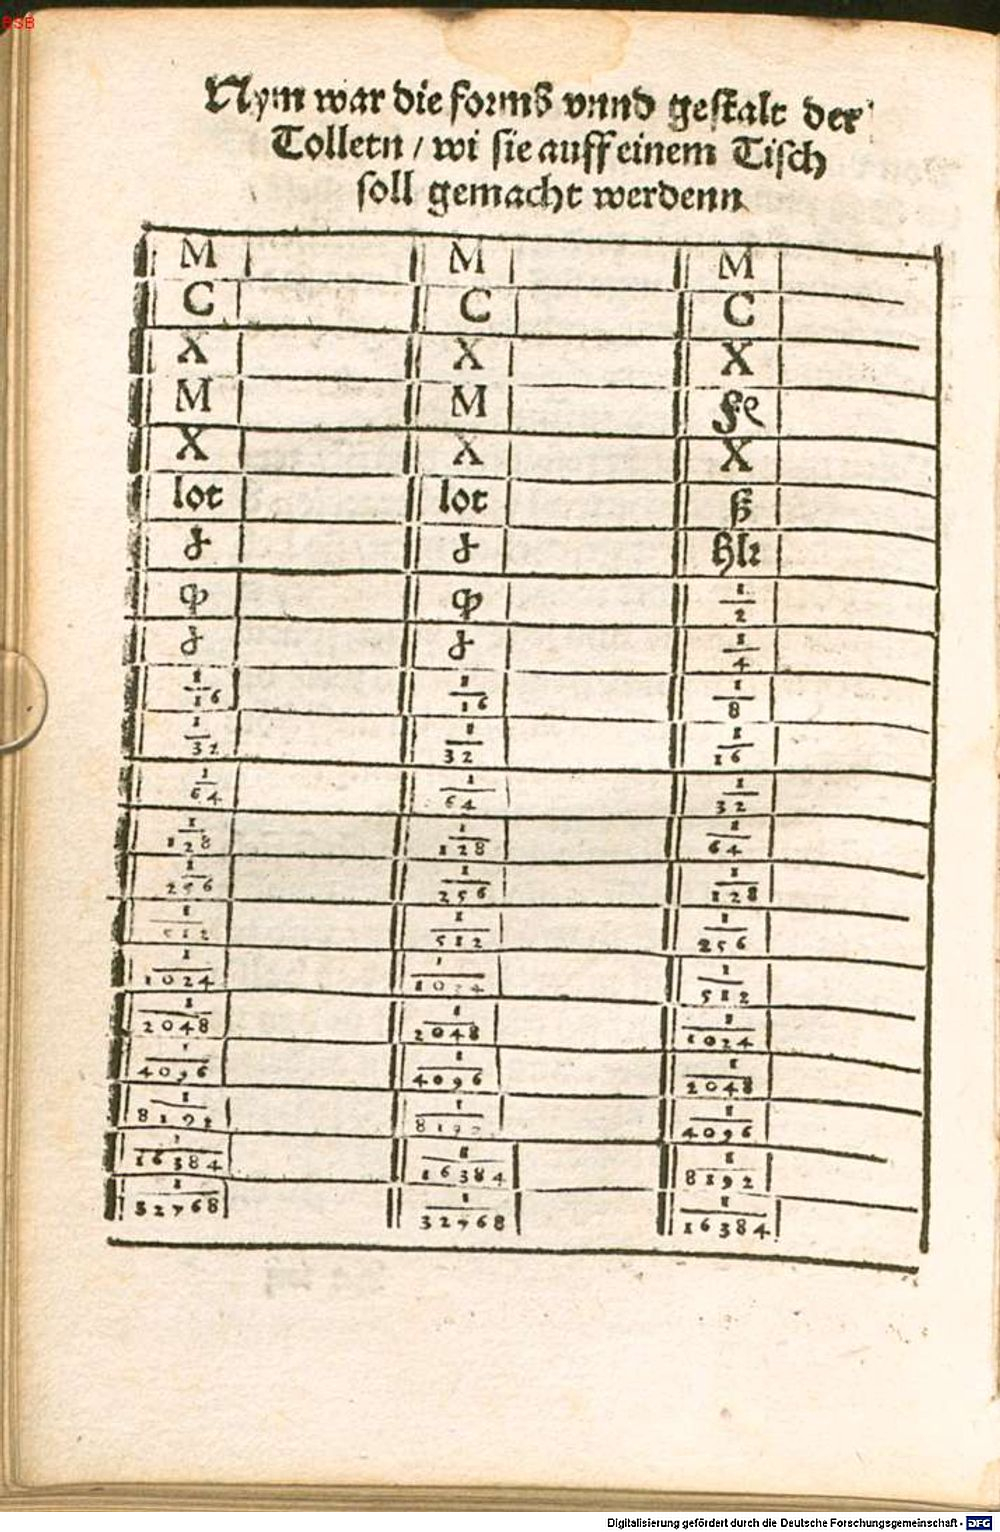 BSB
Nym war die forms vnnd gestalt der
Tolletn / wi sie auff einem Tisch
soll gemacht werdenn
M M M
C C C
X X X
M M
X X X
lot lot ß
hlr
1/2
1/4
1/16 1/16 1/8
1/32 1/32 1/16
1/64 1/64 1/32
1/128 1/128 1/64
1/256 1/256 1/128
1/512 1/512 1/256
1/1024 1/1024 1/512
1/2048 1/2048 1/1024
1/4096 1/4096 1/2048
1/8192 1/8192 1/4096
1/16384 1/16384 1/8192
1/32768 1/32768 1/16384
Digitalisierung gefördert durch die Deutsche Forschungsgemeinschaft - DFG